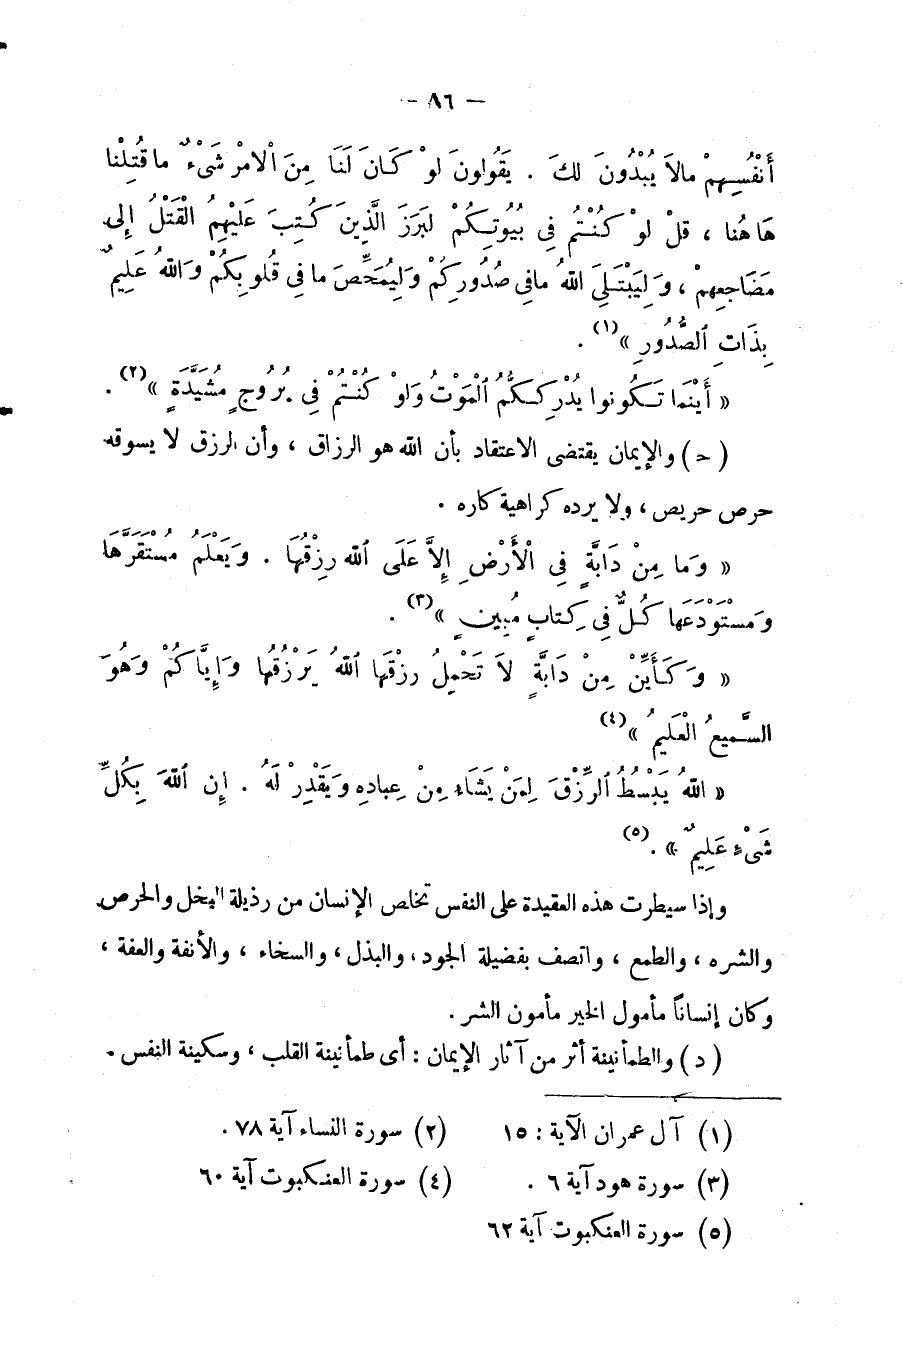 — ٨٦ —
أَنْفُسِهِمْ مالاَ يُبْدُونَ لكَ . يَقُولونَ لوْ كَانَ لَنَا مِنَ اْلامْرْ شَىْءٌ ما قُتِلْنا
هَاهُنا ، قلْ لوْ كُنْتُم فِى بُيُوتِكُمْ لبَرَزَ الَّذِينَ كُتِبَ عَليْهِمُ القَتْلُ إلى
مَضَاجِعِهِمْ ، وَلِيَبْتَلِىَ اللهُ مافِى صُدُورِكُمْ وَلِيُمَحِّصَ ما فِى قُلوبِكُمْ وَاللهُ عَلِيمٌ
بِذَاتِ الصُّدُورِ »(١) .
« أَيْنَما تَكُونوا يُدْرِككُّمُ المَوْتُ وَلوْ كُنْتُمْ فِى بُرُوجٍ مُشَيَّدَةٍ »(٢) .
( ح ) والإيمان يقتضى الاعتقاد بأن الله هو الرزاق ، وأن الرزق لا يسوقه
حرص حريص ، ولا يرده كراهية كاره .
« وَما مِنْ دَابَّةٍ فِى الْأَرْضِ إِلاَّ عَلَى اللهِ رِزْقُهَا . وَيَعْلَمُ مُسْتَقَرَّهَا
وَمسْتَوْدَعَها كُلٌّ فِى كِتابٍ مُبِينٍ »(٣) .
« وَكَأَيِّنْ مِنْ دَابَّةٍ لاَ تَحْمِلُ رِزْقَها اللهُ يَرْزُقُها وَإِيَّاكُمْ وَهُوَ
السَّمِيعُ الْعَلِيمُ »(٤)
« اللهُ يَبْسُطُ الرِّزْقَ لِمَنْ يَشَاءُ مِنْ عِبادِهِ وَيَقْدِرْ لَهُ . إِن اللهَ بِكُلِّ
شَىْءٍ عَلِيمٌ » .(٥)
وإذا سيطرت هذه العقيدة على النفس تخلص الإنسان من رذيلة البخل والحرص
والشره ، والطمع ، واتصف بفضيلة الجود ، والبذل ، والسخاء ، والأنفة والعفة ،
وكان إنساناً مأمول الخير مأمون الشر .
( د ) والطمأنينة أثر من آثار الإيمان : أى طمأنينة القلب ، وسكينة النفس .
(١) آل عمران الآية : ١٥ (٢) سورة النساء آية ٧٨ .
(٣) سورة هود آية ٦ . (٤) سورة العنكبوت آية ٦٠
(٥) سورة العنكبوت آية ٦٢